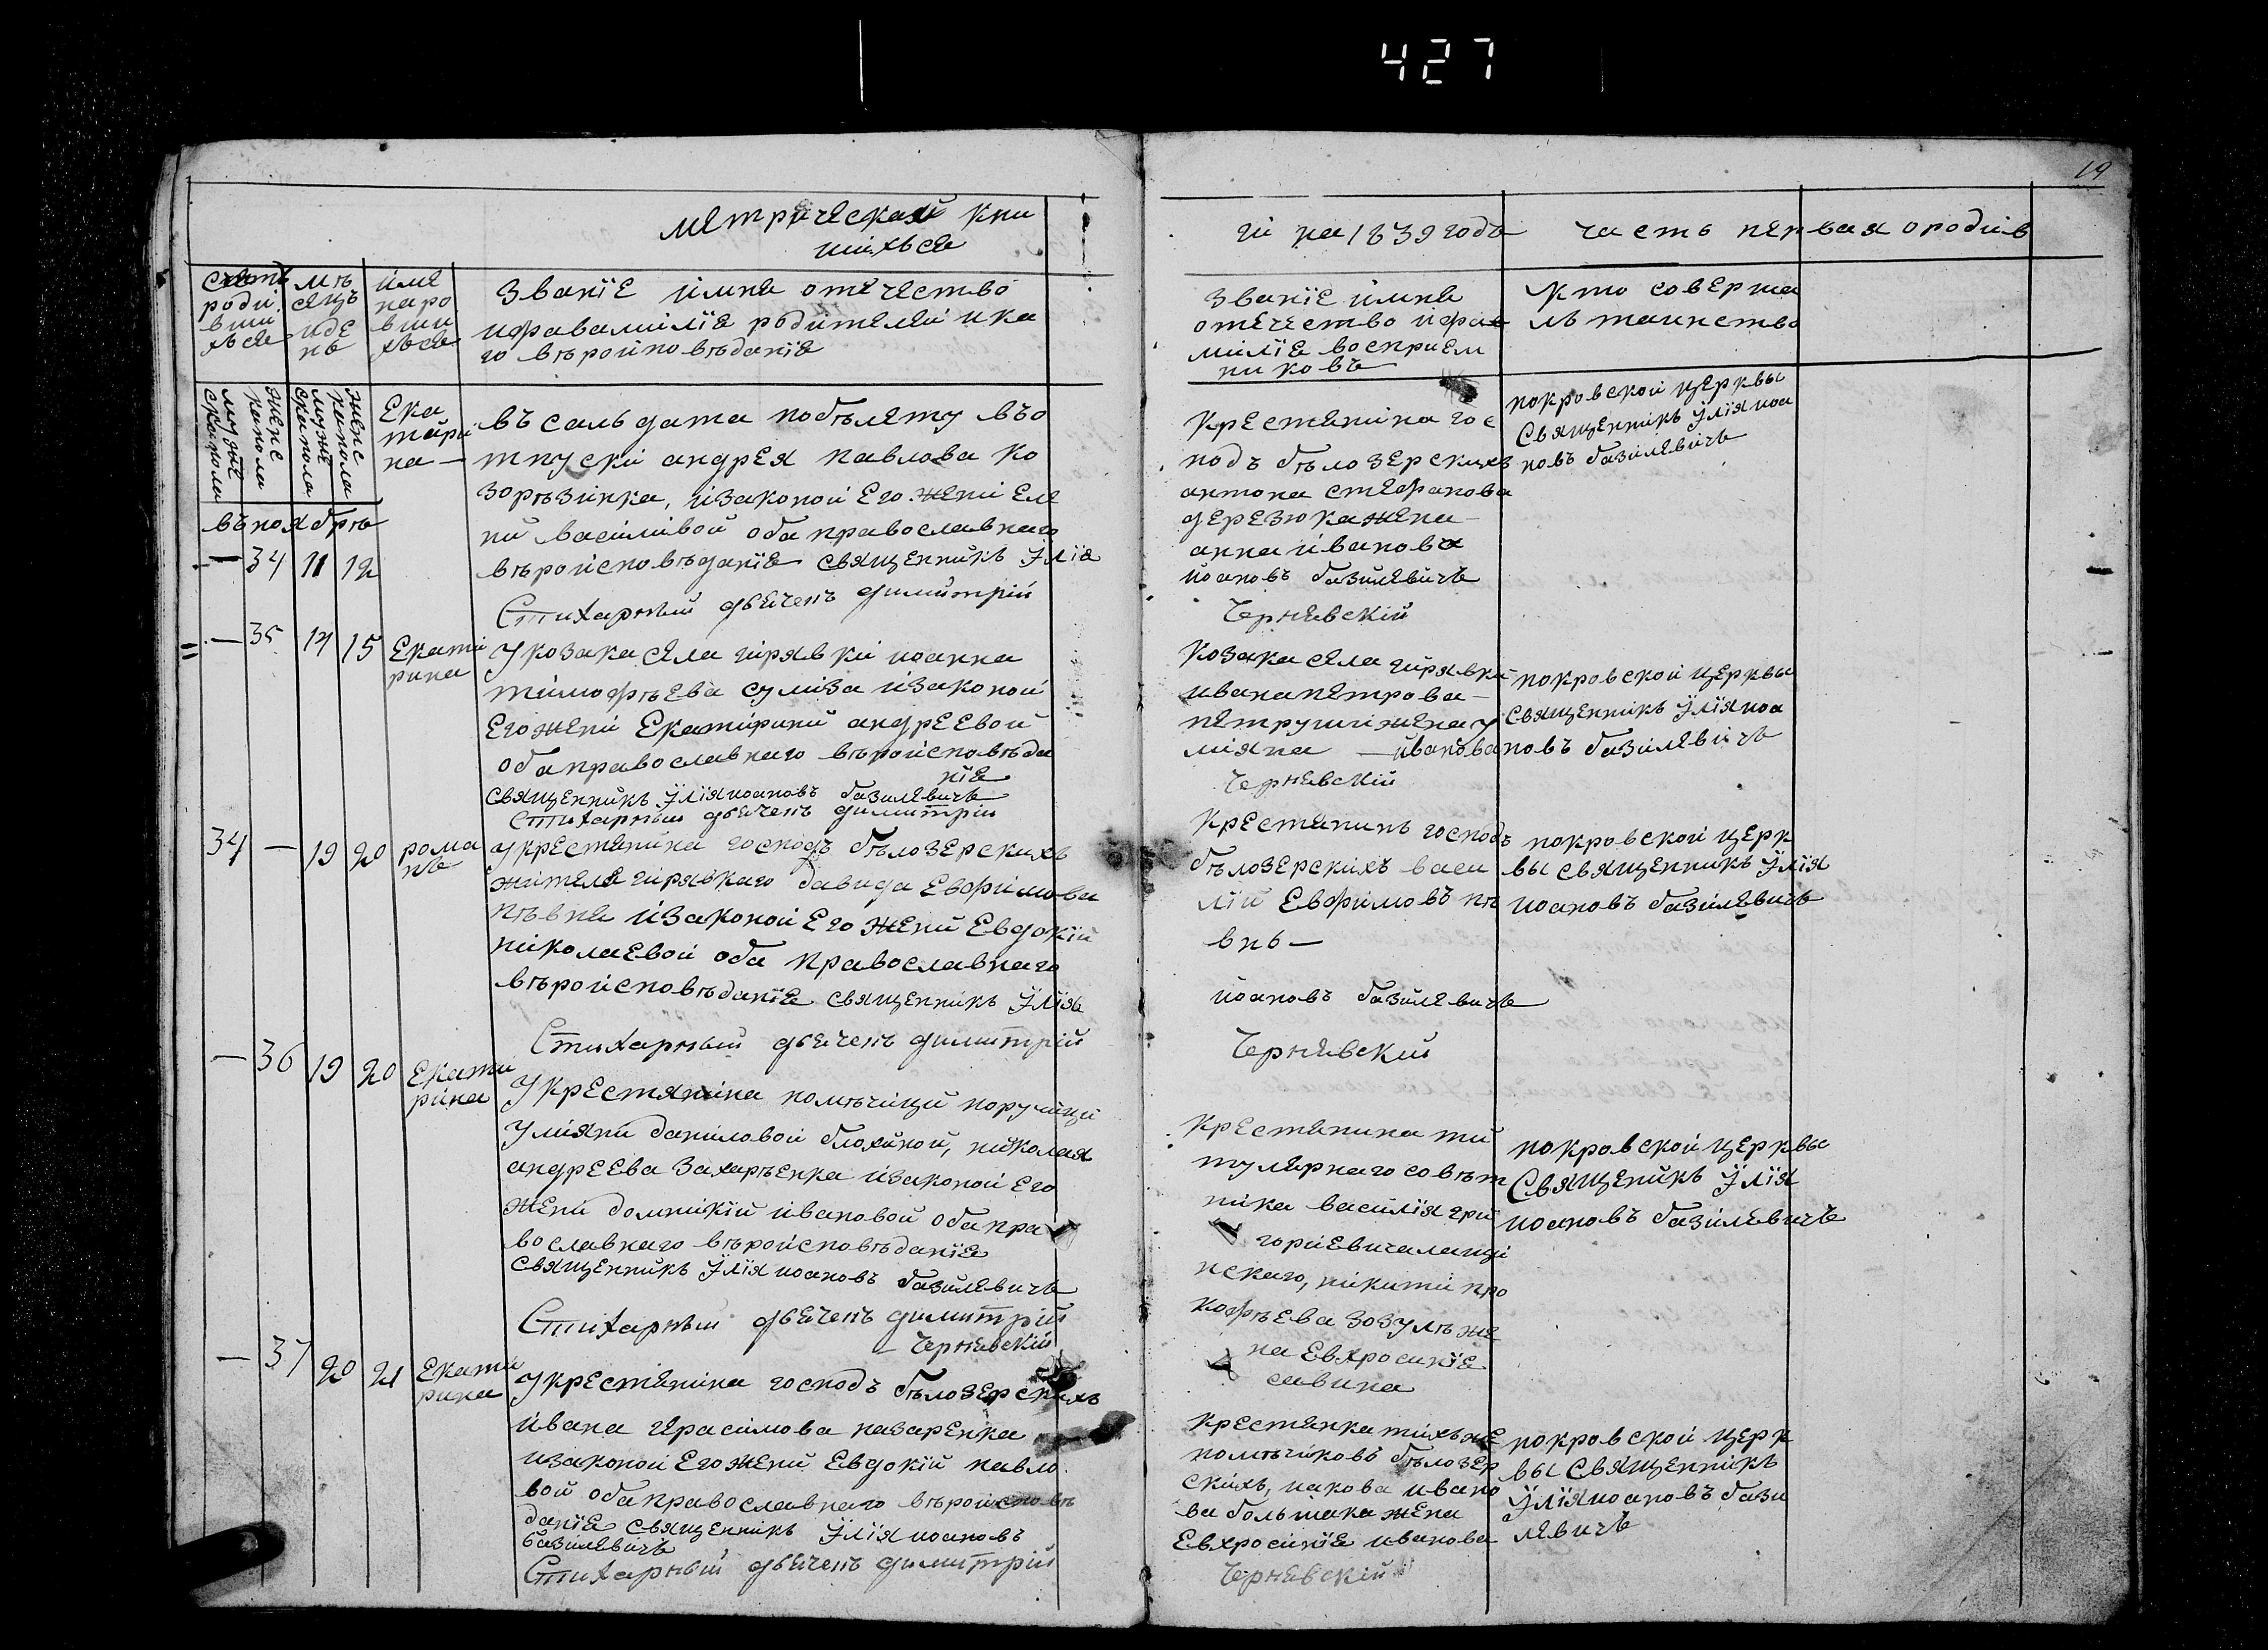 427
19
метрической кни
шихься
гй на 1839 года
часть первая ородив
счетъ
роди
вши
хься
мѣ
сяць
иде
нь
имя
наро
вши
хься
Званїе имна отечество
ифавамилїя родителей ика
го вѣройповѣданїя
Званїе имна
отечество ифа
милїя восприем
никовъ
Кто соверша
лъ таинство
муже
скапола
женс
капола
мужe
скапола
женс
капола
Ека
тари
на —
въ сальдата побѣлету въо
тпускй андрея павлова ко
зорѣзинка, изаконой Его женй Еле
нй василивой оба православнаго
вѣроисповѣданїя священникъ Илїя
Стихарный дьяченъ димитрїй
Крестянина гос
подъ бѣлозерскихъ
антона стефанова
дерезюка жена
анна иванова
иоановъ базилевичъ
Чернявскїй
покровской церквы
Священникъ Илїя иоа
новъ базилевичъ
въ ноябрѣ
— 34 11 12
— 35 14 15 Екати
рина
У козака села гирявкй иоанна
тимофѣева сулиза изаконой
Его женй Екатиринй андреевой
оба православнаго вѣроисповѣда
нїя
священникъ Илїя иоановъ базилевичъ
Стихарный дьяченъ димитрїй
Козака села гирявкй
ивана петрова
петруши жена у
лияна — иванова
Чернявскїй
покровской церквы
священникъ Илїя иоа
новъ базилевичъ
34 — 19 20 рома
нъ
У крестянина господъ бѣлозерскихъ
жителя гирявкаго давида Евфимова
пѣвня изаконой Его женй Евдокїй
николаевой оба православнаго
вѣроисповѣданїя священникъ Илїя
Стихарный дьяченъ димитрїй
Крестянинъ господъ
бѣлозерскихъ васи
лїй Евфимовъ пѣ
внь —
иоановъ базилевичъ
Чернявскїй
покровской церк
вы священникъ Илїя
иоановъ базилевичъ
— 36 19 20 Екати
рина
У крестянина помѣчицй поручицй
Улиянй даниловой блохиной, николая
андреева Захарѣенка изаконой Его
женй домникїй ивановой оба пра
вославнаго вѣроисповѣданїя
священникъ Илїя иоановъ базилевичъ
Стихарный дьяченъ димитрїй
Чернявскїй
Крестянина ти
тулярнаго совѣт
ника василїя гри
горіевича лащи
нскаго, никити про
кофѣева зозулѣ же
на Евхросинїя
савина
покровской церквы
Священикъ Илїя
иоановъ базилевичъ
— 37 20 21 Екати
рина
У крестянина господъ бѣлозерскихъ
ивана герасимова назаренка
изаконой Его женй Евдокїй павло
вой оба православнаго вѣроисповѣ
данїя священникъ Илїя иоановъ
базилевичъ
Стихарный дьяченъ димитрїй
Крестянка тихъже
помѣчиковъ бѣлозер
скихъ, иакова ивано
ва большака жена
Евхросинїя иванова
Чернявскїй
покровской церк
вы священникъ
Илїя иоановъ бази
левичъ